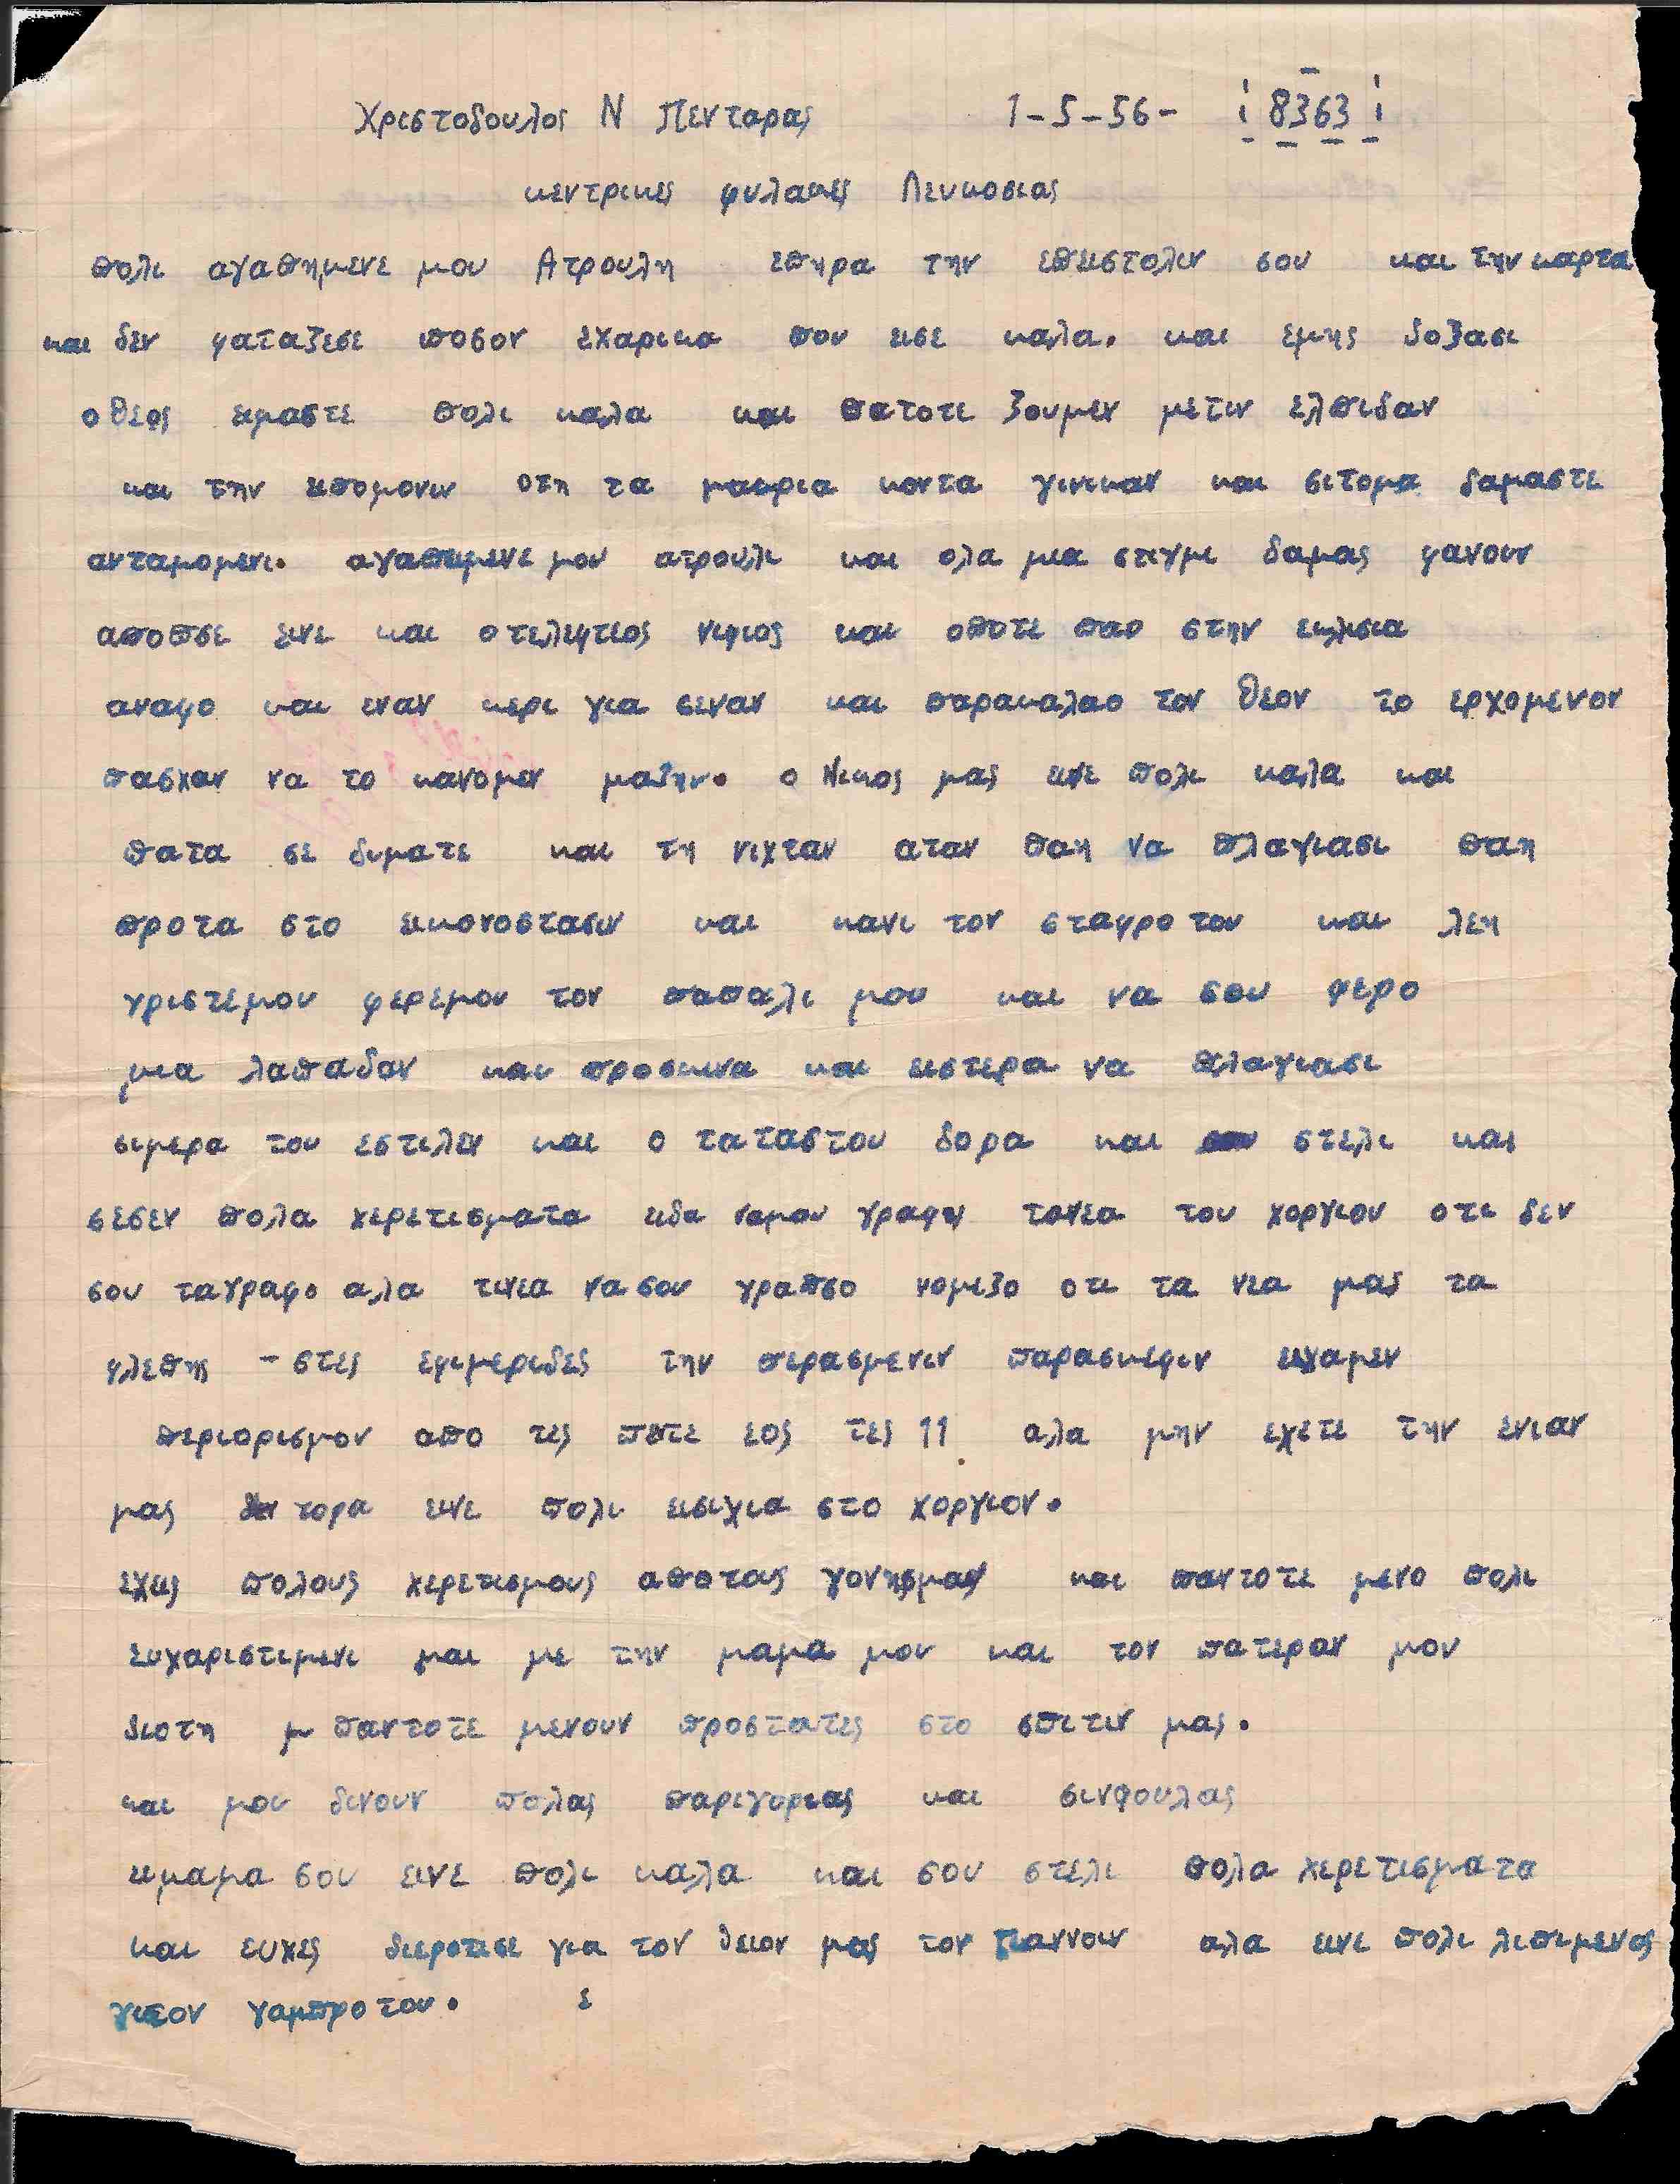 Χριστοδουλος Ν Πενταρας 1-5-56- 8363
κεντρικες φυλακες Λευκοσιας
πολι αγαπημενε μου Ατρουλη επηρα την επιστολιν σου και την καρτα
και δεν φαταζεσε ποσον εχαρικα που εισε καλα. και εμης δοξασι
ο θεος ειμαστε πολι καλα και πατοτε ζουμεν με τιν ελπιδαν
και την ιπομονιν οτη τα μακρια κοντα γινικαν και σιτομα δαμαστε
ανταμομενι. αγαπιμενε μου ατρουλι και ολα μια στιγμι δαμας φανουν
αποπσε εινε και ο τελεφτεος νιφιος και οποτε παο στην εκλισια
αναφο και εναν κερι για σεναν και παρακαλαο τον θεον το ερχομενον
πασχαν να το κανομεν μαζην. ο Νικος μας εινε πολι καλα και
πατα σε διματε και τη νιχταν αταν παη να πλαγιασι παη
προτα στο εικονοστασιν και κανι τον σταφρο του και λεη
χριστεμου φερεμου τον παπαλι μου και να σου φερο
μια λαπαδαν και προσκινα και ειστερα να πλαγιασι
σιμερα του εστιλεν και ο τατας του δορα και στελι και
σεσεν πολα χερετισματα ειδα ναμου γραφη τανεα του χοργιου οτι δεν
σου ταγραφο αλα τινεα να σου γραπσο νομιζο οτι τα νεα μας τα
φλεπης - στες εφιμεριδες την περασμενιν παρασκεφιν ειχαμεν
περιορισμον απο τες πετε εος τες 11 αλα μην εχετε την ενιαν
μας τορα εινε πολι εισιχια στο χοργιον.
εχεις πολους χερετισμους αποτους γονης μας και παντοτε μενο πολι
ευχαριστιμενι και με την μαμα μου και τον πατεραν μου
διοτη παντοτε μενουν προστατες στο σπιτιν μας.
και μου δινουν πολας παριγοριας και σινφουλας
ειμαμα σου εινε πολι καλα και σου στελι πολα χερετισματα
και ευχες διεροτισε για τον θειον μας τον γιαννουν αλα εινε πολι λιπιμενος
γιατον γαμπρο του. ε